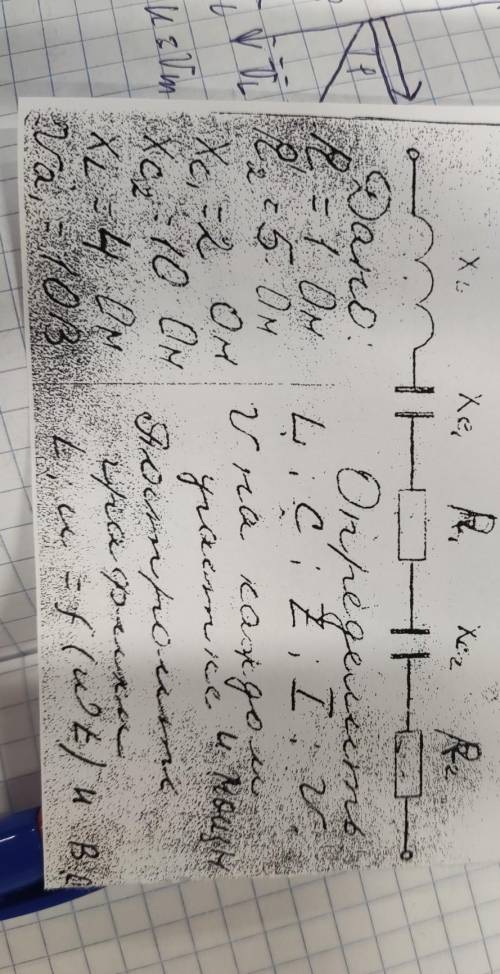 XL Xc₁ R₁ Xc2 R₂
Дано:
R = 1 Ом
R₂ = 5 Ом
Xc₁ = 2 Ом
Xc₂ = 10 Ом
XL = 4 Ом
Ua₁ = 10 В
Определить
L; C; Z; I; U;
U на каждом
участке и мощн
Построить
графики
i, u = f(ωt) и ВД